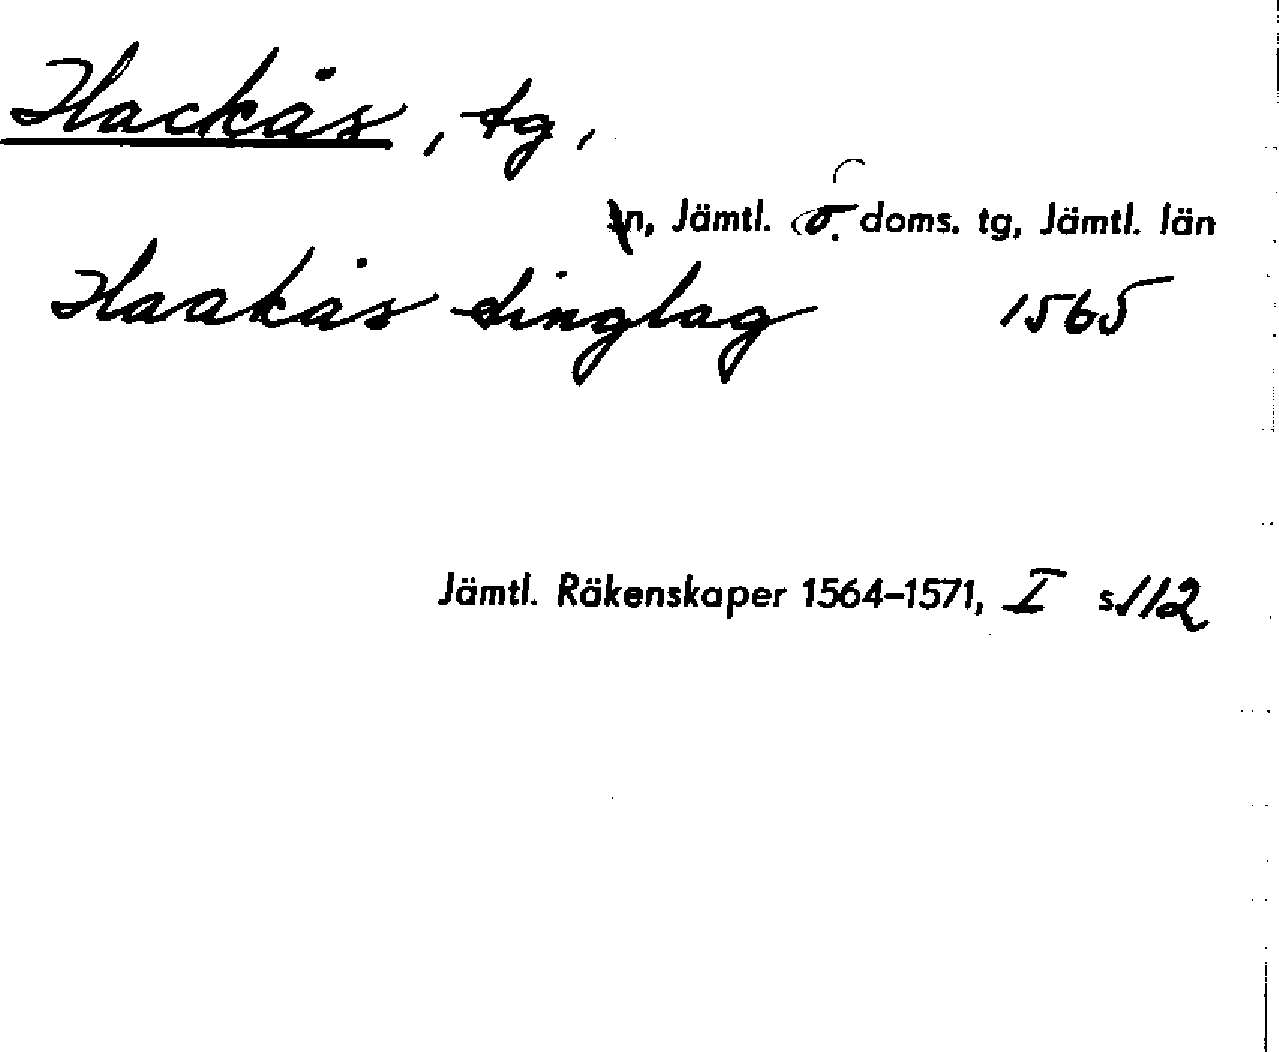 Hackås, tg,
sn, Jämtl. ö. doms. tg, Jämtl. län
Haakås tinglag 1565
Jämtl. Räkenskaper 1564–1571, I s. 112